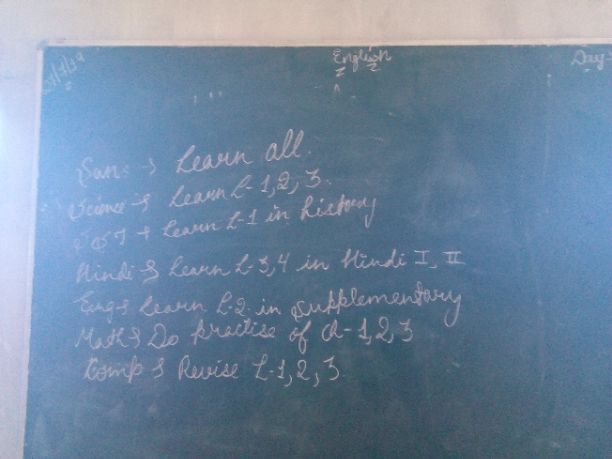 English
Day-
San :→ Learn all.
Science → Learn L-1,2,3.
→ Learn L-1 in history
Hindi → Learn L-3,4 in Hindi I, II
Eng → Learn L-2 in Supplementary
Math → Do practise of Ch-1,2,3
Comp → Revise L-1,2,3.